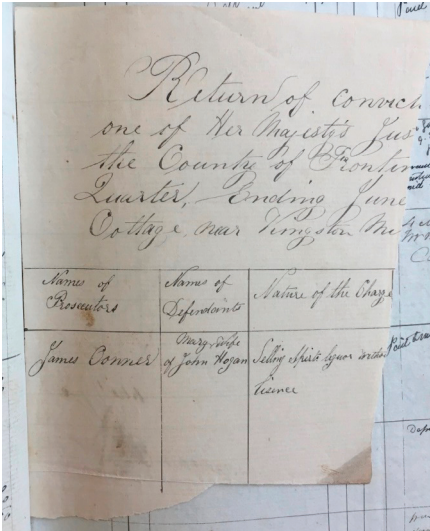 Return of convict
one of Her Majesty's Jus
the County of Fronten
Quarter, Ending June
Cottage, near Kingston
Names of
Prosecutors
Names of
Defendants
Nature of the Charge
James Conner
Mary wife
of John Hogan
Selling Spirit liquor without
lisence
Paid